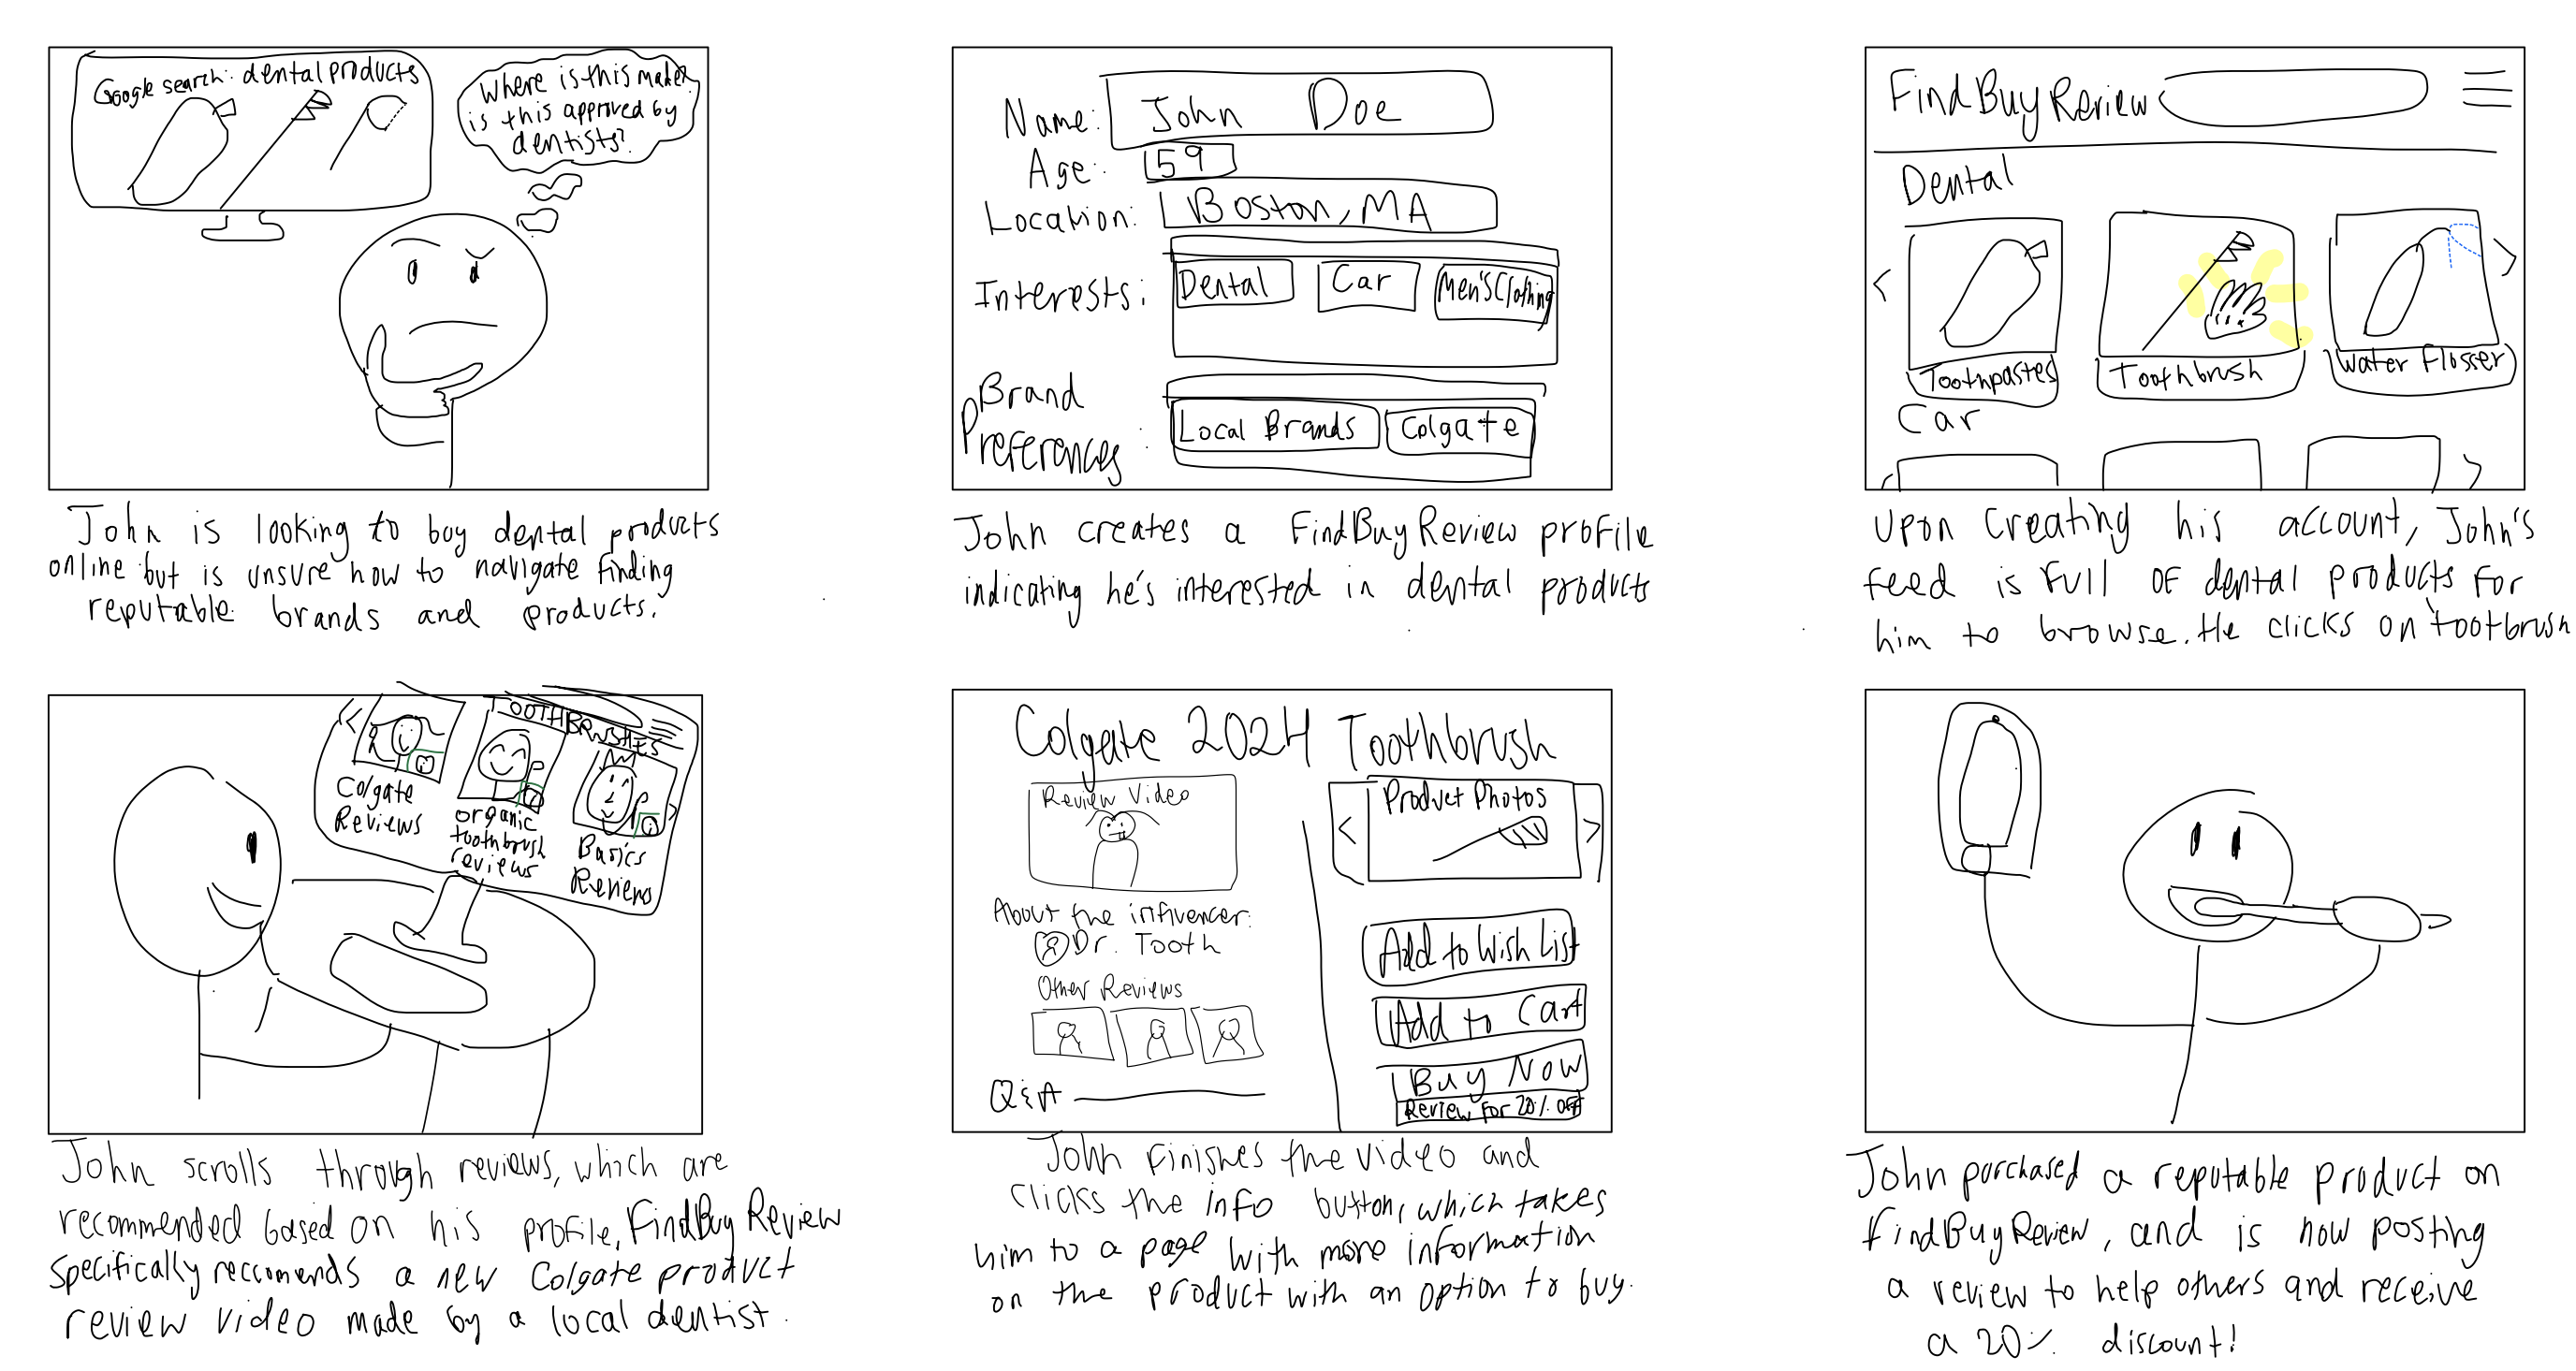 Google search: dental products
Where is this made?
is this approved by
dentists?
John is looking to buy dental products
online but is unsure how to navigate finding
reputable brands and products.
Name: John Doe
Age: 59
Location: Boston, MA
Interests: Dental Car Men's Clothing
Brand
Preferences: Local Brands Colgate
John creates a FindBuyReview profile
indicating he's interested in dental products
FindBuyReview
Dental
< >
Toothpastes Toothbrush Water Flosser
Car
< >
Upon creating his account, John's
feed is full of dental products for
him to browse. He clicks on tootbrush
TOOTHBRUSHES
<
Colgate
Reviews
organic
toothbrush
reviews
Basics
Reviews
>
John scrolls through reviews, which are
recommended based on his profile. FindBuyReview
specifically reccomends a new Colgate product
review video made by a local dentist.
Colgate 2024 Toothbrush
Review Video
About the influencer:
Dr. Tooth
Other Reviews
Q&A
Product Photos
< >
Add to Wish List
Add to Cart
Buy Now
Review for 20% off
John finishes the video and
clicks the info button, which takes
him to a page with more information
on the product with an option to buy.
John purchased a reputable product on
FindBuyReview, and is now posting
a review to help others and receive
a 20% discount!